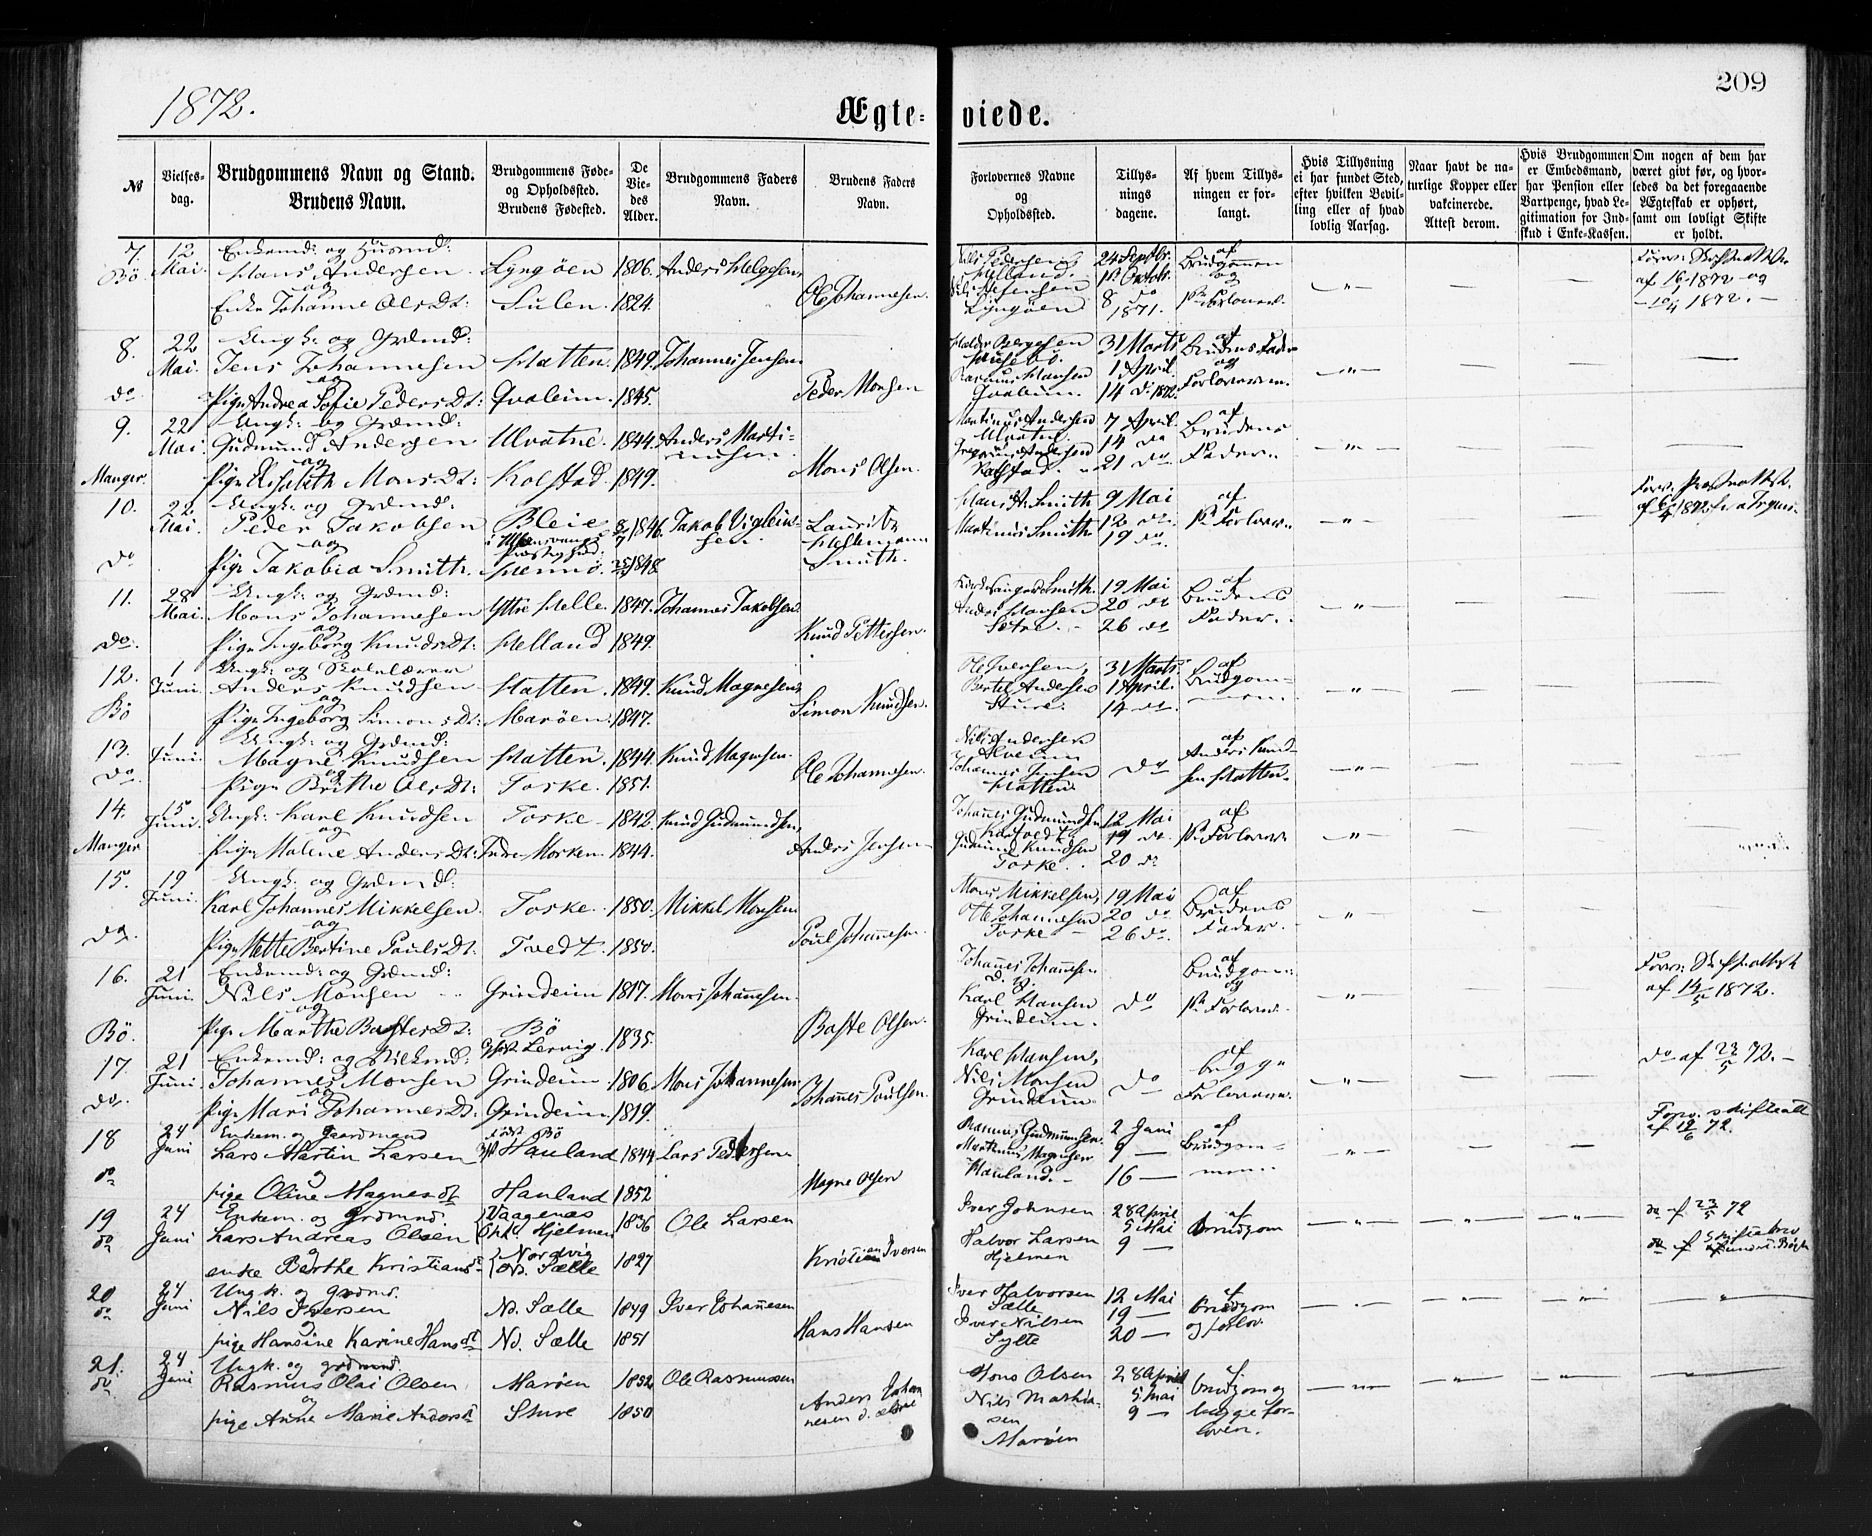 1872.
Ægte-
viede.
209
№
Vielses-
dag.
Brudgommens Navn og Stand.
Brudens Navn.
Brudgommens Føde-
og Opholdssted.
Brudens Fødested.
De
Vie-
des
Alder.
Brudgommens Faders
Navn.
Brudens Faders
Navn.
Forlovernes Navne
og
Opholdssted.
Tillys-
nings
dagene.
Af hvem Tillys-
ningen er for-
langt.
Hvis Tillysning
ei har fundet Sted,
efter hvilken Bevil-
ling eller af hvad
lovlig Aarsag.
Naar havt de na-
turlige Kopper eller
vakcinerede.
Attest derom.
Hvis Brudgommen
er Embedsmand,
har Pension eller
Vartpenge, hvad Le-
gitimation for Ind-
skud i Enke-Kassen.
Om nogen af dem har
været givt før, og hvor-
ledes da det foregaaende
Ægteskab er ophørt,
samt om lovligt Skifte
er holdt.
7. 12 Enkemd: og Husmd:
Bö Mai. Hans Andersen Lyngöen 1806. Anders Helgesen
og
Enke Johanne Olsdt: Sulen 1824. Ole Johannesen.
24 Septbr.
1st Oktob.
8 do
1871.
af
Brudgommen
og
Lyngöen
af 16/1 1872 og
10/4 1872.
8. 22 Ungk: og Grdmd:
Mai. Jens Johannesen Hatten. 1849. Johannes Jensen
og
do Pige Andrea Sofie Pedersdt: Qvaleim. 1845. Peder Monsen
31 Marts
1 April.
14 do 1872.
af
Brudens Fader
og
Forloverne.
Rasmus Hansen
9. 22 Ungk: og Grdmd:
Mai. Gudmund Andersen Ulvatne. 1844. Anders Marti-
nusen.
og
Manger. Pige Elisabeth Monsdt: Kolstad. 1849. Mons Olsen.
Martinus Andersen 7 April.
14 do
21 do
af
Brudens
Fader.
10. 22 Ungk: og Grdmd:
Mai. Peder Jakobsen Bleie 8/7 1846. Jakob Viglein-
sen.
og
do Pige Jakobia Smith. 1848.
Lauritz
Hellemann
Smith.
Hans A. Smith 9 Mai
Martinus Smith 12 do
19 do
af
Forlover.
11. 28 Ungk: og Grdmd:
Mai. Mons Johannesen Ytre Helle 1847. Johannes Jakobsen
og
do. Pige Ingeborg Knudsdt: Helland 1849. Knud Pettersen.
19 Mai
Anders Hansen 20 do
Sætre. 26 do
af
Brudens
Fader.
12. 1 Ungk: og Skolelærer
Juni. Anders Knudsen Hatten. 1849. Knud Magnesen
og
Bö Pige Ingeborg Simonsdt: Maröen. 1847. Simon Knudsen.
Ole Iversen, 31 Marts
Bertel Andersen 1 April.
Sture. 14 do
af
Brudgom-
men.
13. 1 Ungk: og Grdmd:
Juni. Magne Knudsen Hatten. 1844. Knud Magnesen.
og
do Pige Brithe Olsdt: Toske. 1851. Ole Johannesen.
Nils Andersen
Johannes Jensen
Hatten.
do
af
Anders Knud-
sen Hatten.
14. 15 Ungk: Karl Knudsen Toske 1842 Knud Gudmundsen,
Juni. og
Manger Pige Malene Andersdt: Indre Morken. 1844. Anders Jensen
Johannes Gudmundsen 12 Mai
19 do
Gudmund Knudsen
Toske. 20 do
af
Forlover.
15. 19 Ungk: og Grdmd:
Juni. Karl Johannes Mikkelsen. Toske. 1850. Mikkel Monsen
og
do. Pige Mette Bertine Paulsdt: Tvedt. 1850. Paul Johannesen.
Mons Mikkelsen, 19 Mai
Ole Johannesen 20 do
Toske 26 do.
af
Brudens
Fader.
16. 21 Enkemd: og Grdmd:
Juni. Nils Monsen Grindeim 1817. Mons Johannesen.
og
Bö. Pige Marthe Bastesdt: Bö 1835. Baste Olsen.
Johannes Johannesen
Karl Hansen
Grindeim.
do
af
Brudgom:
og
Forlover.
Forev: Skifteattest
af 14/5 1872.
17. 21 Enkemd: og Vilkmd:
Juni. Johannes Monsen Grindeim 1806. Mons Johannesen
og
do. Pige Mari Johannesdt: Grindeim. 1819. Johannes Paulsen.
Karl Hansen,
Nils Monsen
Grindeim.
do
af
begge
Forloverne.
do af 23/5 72.
18 24 Enkem. og Gaardmand
Juni Lars Martin Larsen Hauland 1844 Lars Pedersen
og
do pige Oline Magnesdt Hauland 1852 Magne Olsen
Rasmus Gudmundsen. 2 Juni
Martinus Magnesen 9
Hauland. 16
af
Brudgom-
men.
Forev. skifteatt
af 12/6 72.
19 24 Enkem. og Grdmnd. Vaagenæs
do Juni Lars Andreas Olsen Hjelmen 1836 Ole Larsen
og Nordvig
enke Berthe Kristiansd. Nd. Sælle 1827 Kristian Iversen
Iver Johnsen 28 April
5 Mai
Halvor Larsen 9
Hjelmen
af
brudgom
do af 23/5 72
20 24 Ungk. og Grdmd.
do Juni Nils Iversen Nd. Sælle 1849 Iver Johannesen
og
pige Hansine Karine Hansdt Nd. Sælle 1851 Hans Hansen
Iver Halvorsen 12 Mai
Sælle 19
Iver Nilsen
Sylte 20
af
brudgom
og forlov.
21. 24 Ungk. og grdmand.
do Juni Rasmus Olai Olsen Marøen 1852 Ole Rasmussen
og
pige Anne Marie Andersdt Sture 1850 Anders Johan
nesen
Mons Olsen 28 April
5 Mai
Nils Mathia-
sen 9
Marøen
af
brudgom og
begge for-
lovere.